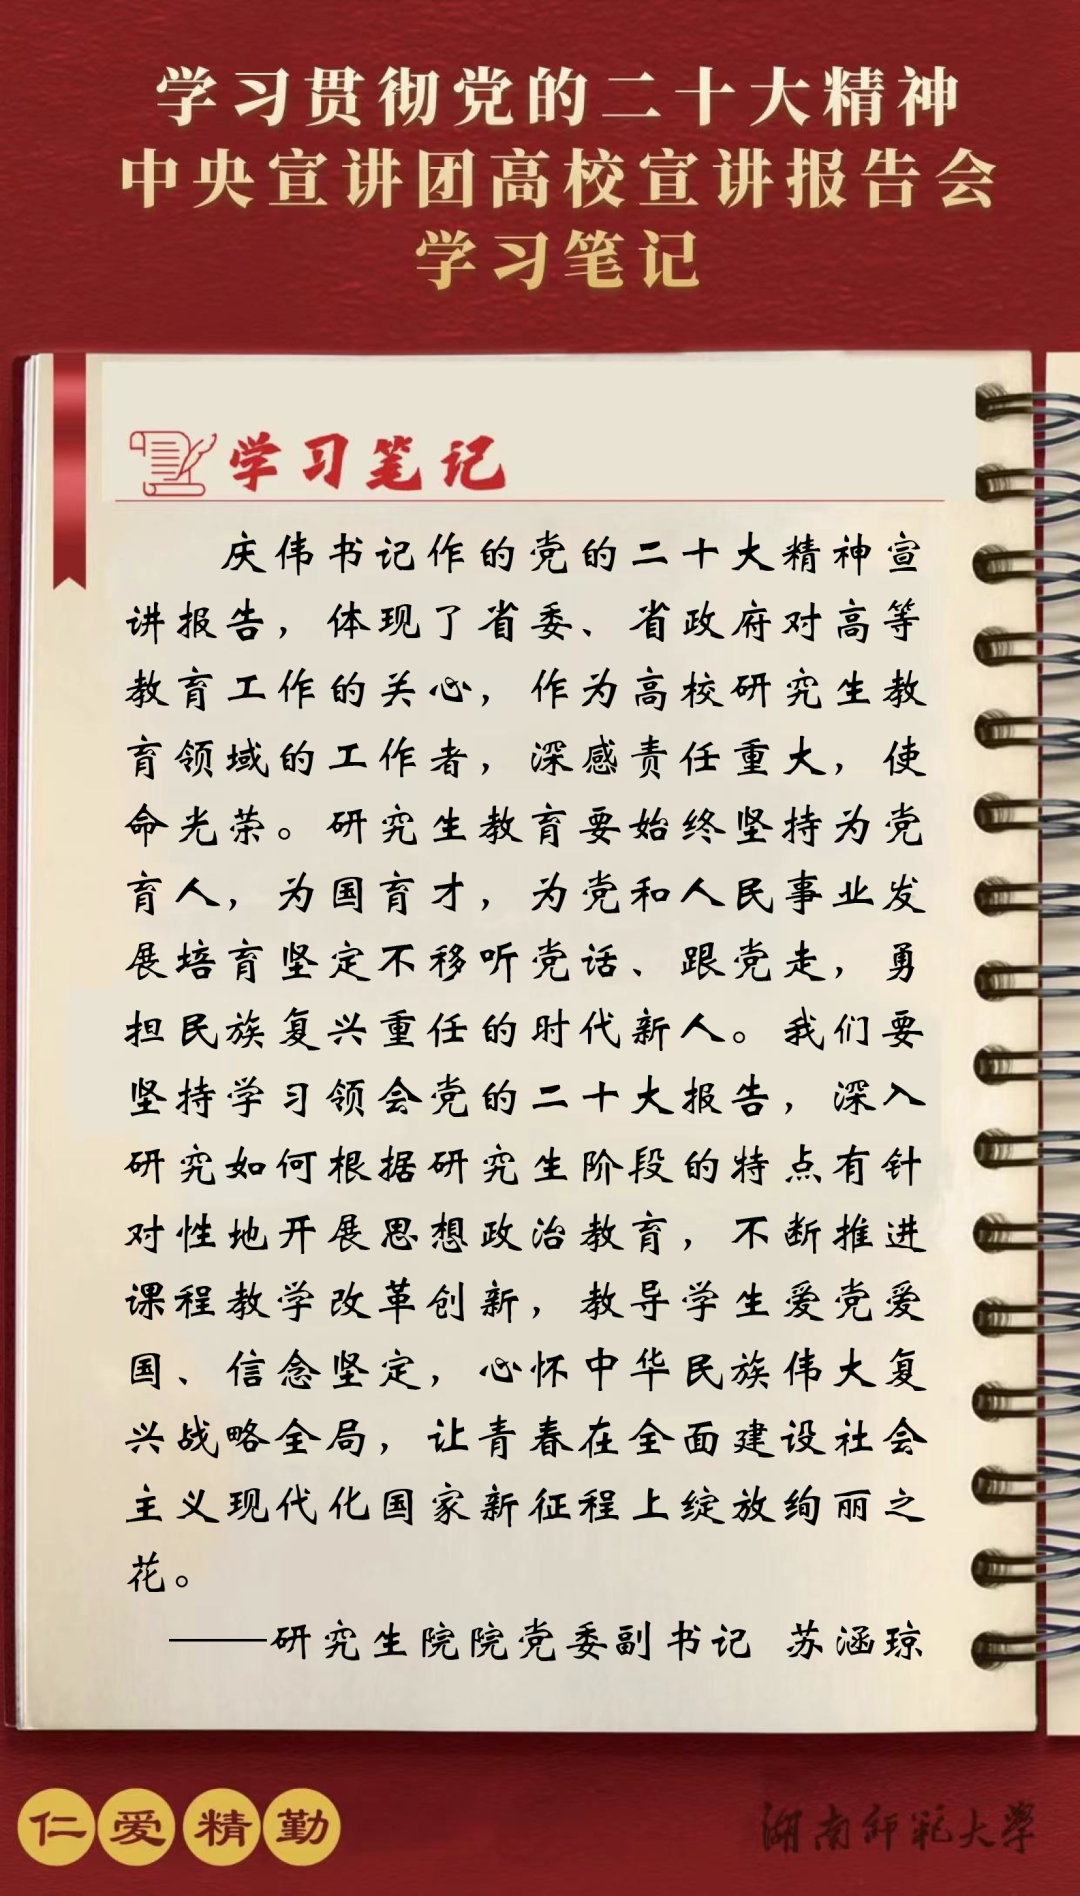 学习贯彻党的二十大精神
中央宣讲团高校宣讲报告会
学习笔记
学习笔记
庆伟书记作的党的二十大精神宣
讲报告，体现了省委、省政府对高等
教育工作的关心，作为高校研究生教
育领域的工作者，深感责任重大，使
命光荣。研究生教育要始终坚持为党
育人，为国育才，为党和人民事业发
展培育坚定不移听党话、跟党走，勇
担民族复兴重任的时代新人。我们要
坚持学习领会党的二十大报告，深入
研究如何根据研究生阶段的特点有针
对性地开展思想政治教育，不断推进
课程教学改革创新，教导学生爱党爱
国、信念坚定，心怀中华民族伟大复
兴战略全局，让青春在全面建设社会
主义现代化国家新征程上绽放绚丽之
花。
——研究生院院党委副书记 苏涵琼
仁爱精勤
湖南师范大学